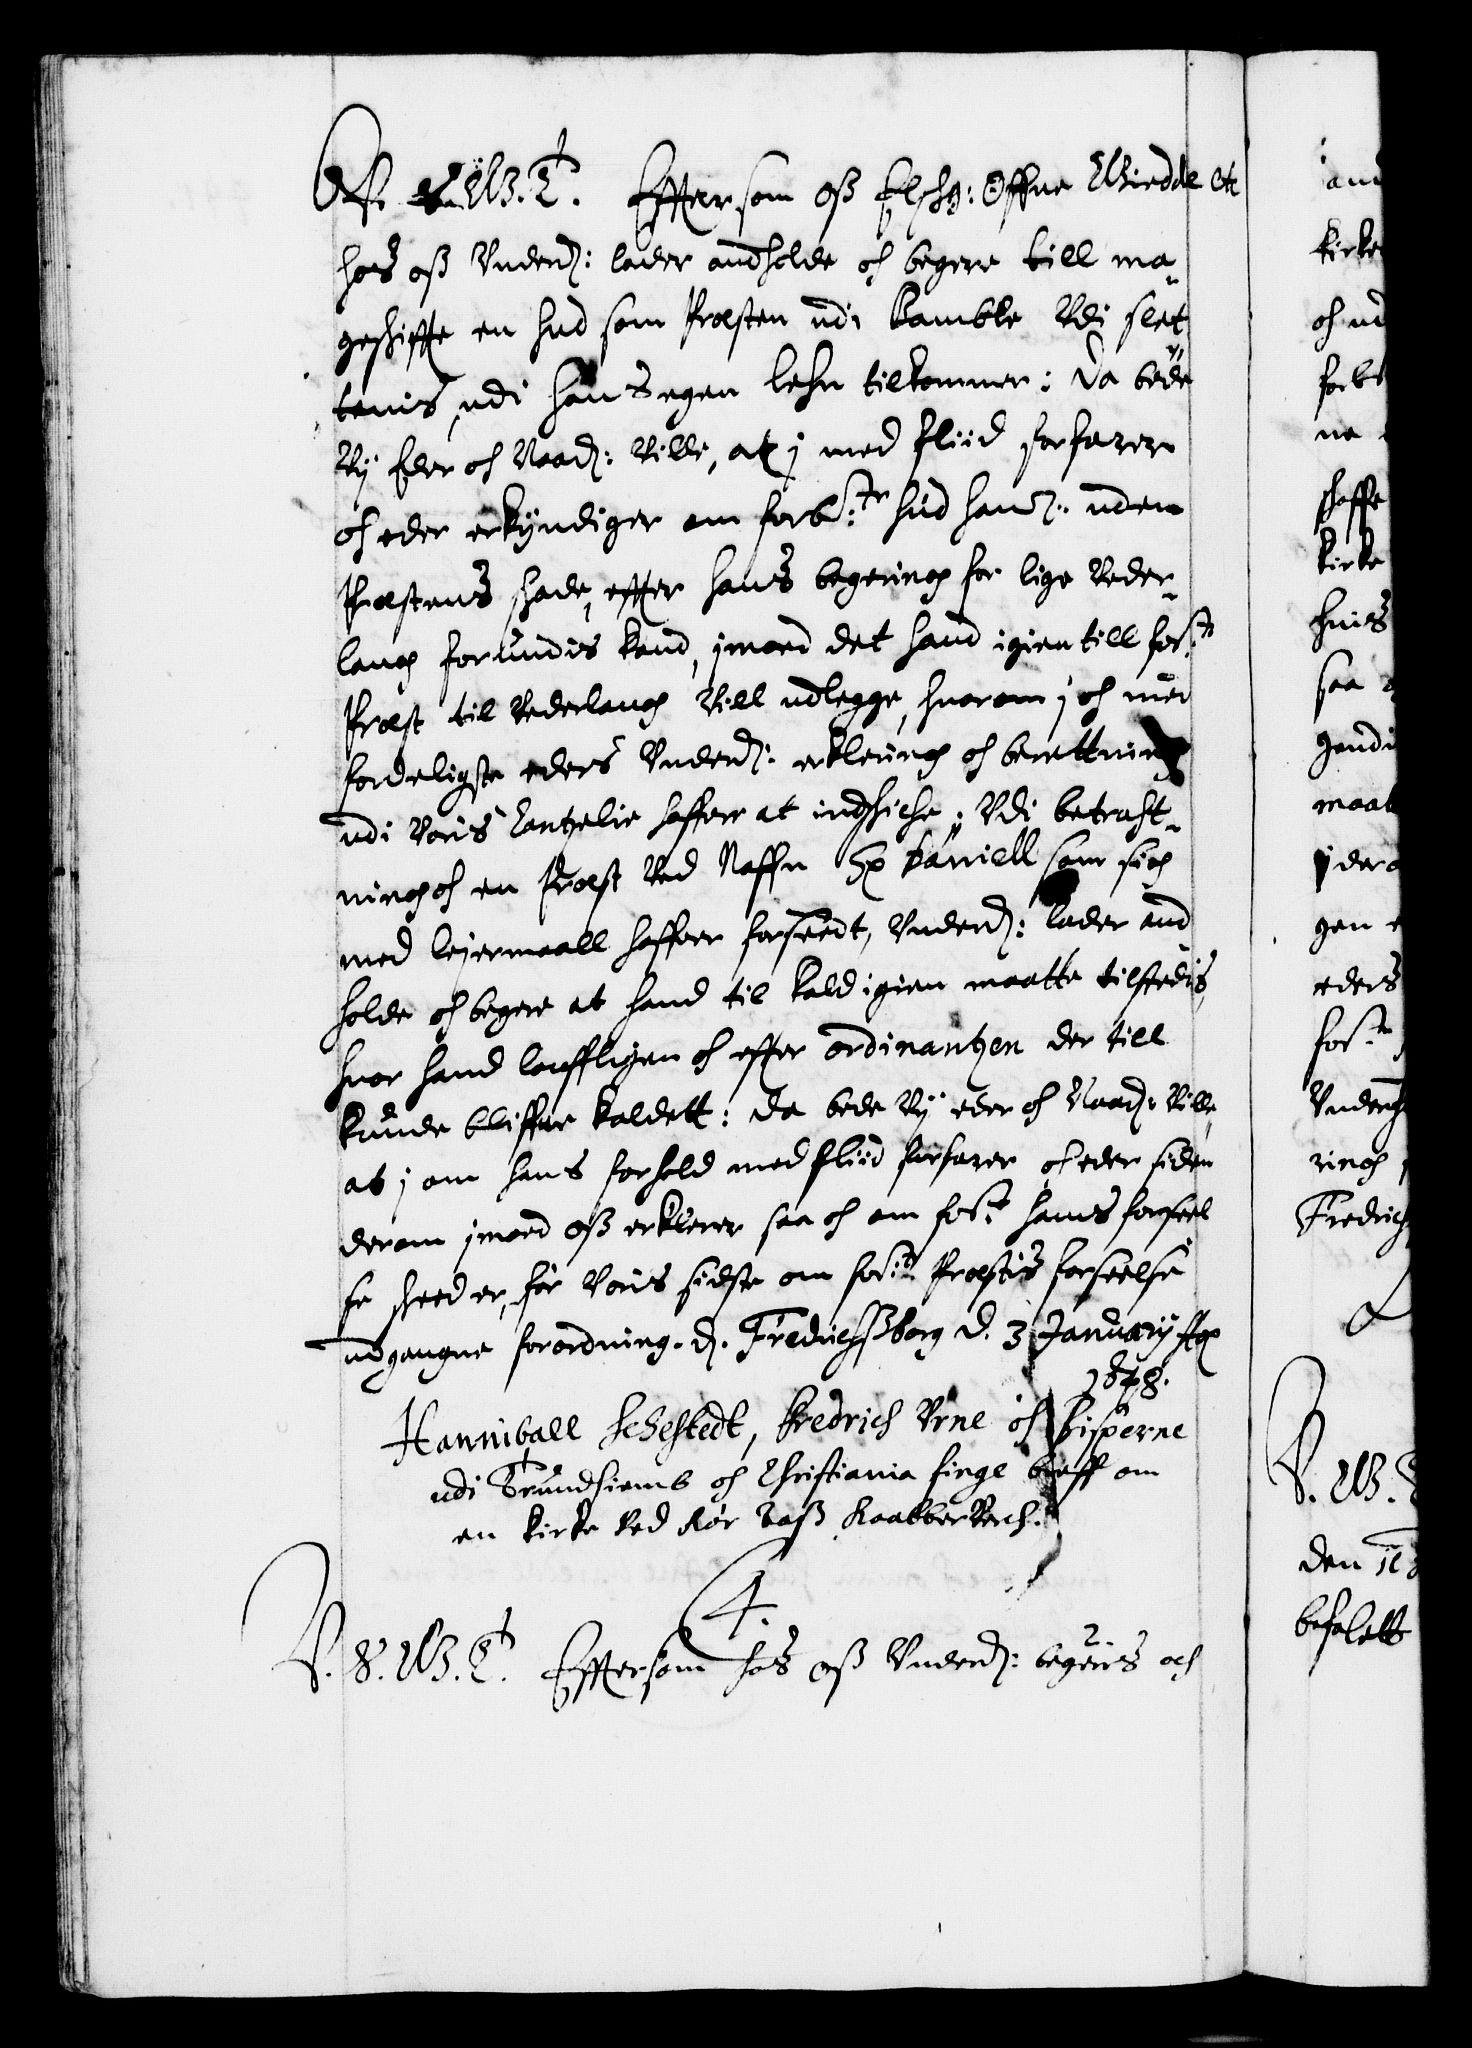 V. W. T. Effter som oß Elsch: Offue Wiedde etc
hos oß Vnderd: lader andholde och begere till ma¬
geschiffte en hud som Præsten udi Bamble Vdi slet¬
tenis, udi hans egen lehn tilkommer: Da bede
Vij Eder och Naad: Ville, at j med fliid forfarer
och eder erkyndiger om forb:te hud hand: uden
Præstens skade, effter hans begering for lige Veder¬
laug forundis kand, jmoed det hand igien till fors:te
Præst til Vederlaug Vill udlegge, huorom j och med
fordeligste eders Vnderd: erklering och berettning
udi Voris Cantzelie haffuer at indschicke; Vdi betracht¬
ning och en Præst Ved Naffn Hr Daniell som sig
med leyermaall haffuer forseedt, Vnderd: lader and
holde och begere at hand til kald igien maatte tilstedis,
huor hand loufligen och effter ordinantzen der till
kunde bliffue kaldett: da bede Vij eder och Naad: Ville,
at j om hans forhold med fliid forfarer och eder siden
derom jmoed oß erklerer saa och om fors:te hans forseel
se skeed er, før Voris sidste om fors:te Præstis forseelse
udgangne forordning. d. Fredrichsborg d. 3 January Ao
1648.
Hanniball Sehestedt, Fredrich Vrne och Bisperne
udi Trundhiemb och Christiania finge breff om
en kirke ved Rør Aaß Kaabber Verch.
4.
V. S. W. T. Effter som hos oß Vnderd: begeris och
and
kirke
och ud
forb
ne
schaffe
kirke
huis
saa
maat
gen
eders
fors:te
ring
Fredrich
V. W.
den
befalett